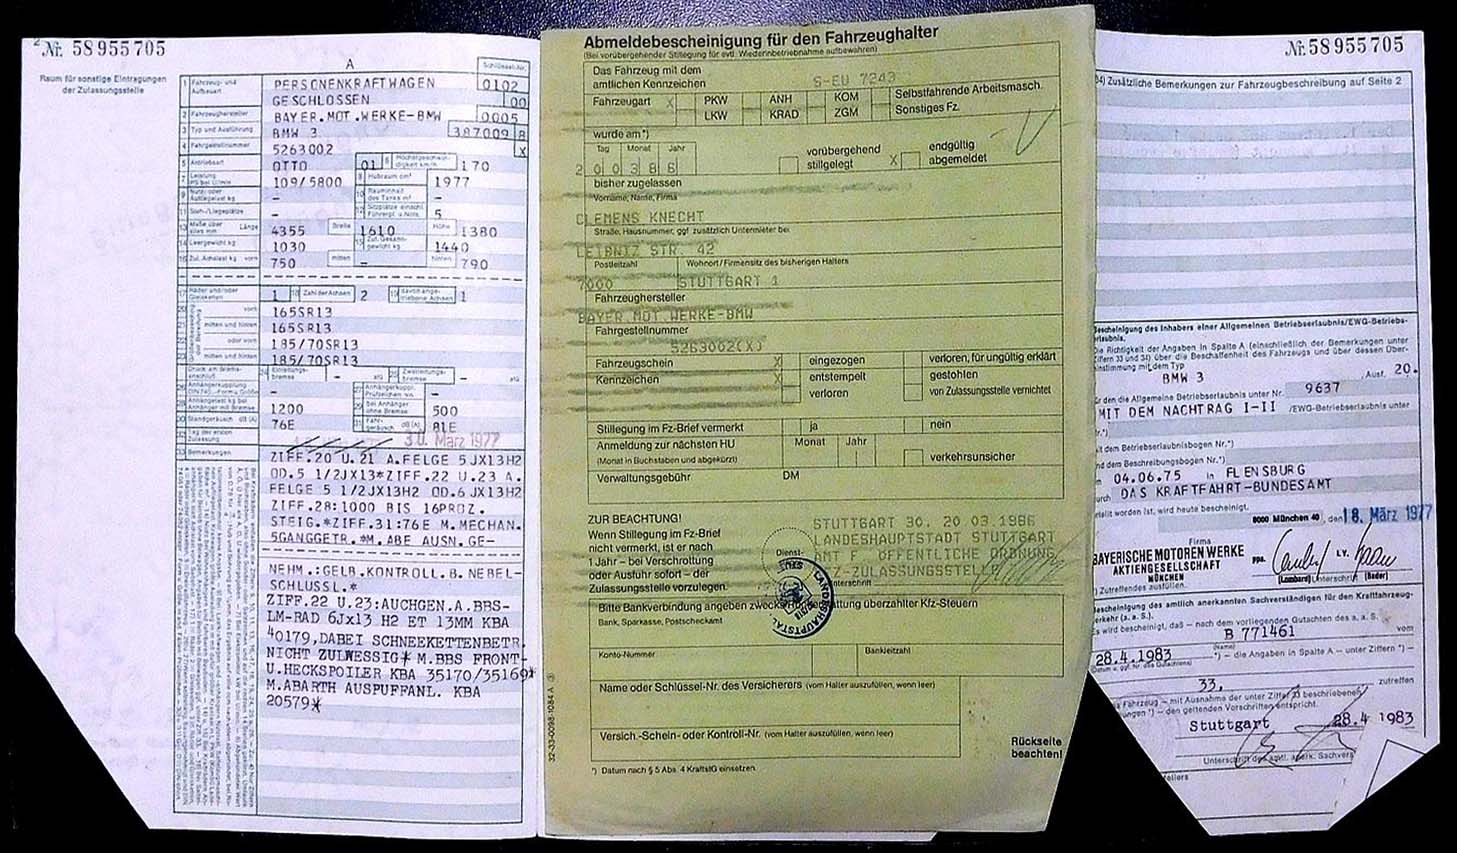 Nr. 58955705
Raum für sonstige Eintragungen
der Zulassungsstelle
A
Schlüssel-Nr.
1 Fahrzeug- und Aufbauart PERSONENKRAFTWAGEN 0102
GESCHLOSSEN 00
2 Fahrzeughersteller BAYER.MOT.WERKE-BMW 0005
3 Typ und Ausführung BMW 3 387009 8
4 Fahrgestellnummer 5263002 X
5 Antriebsart OTTO 01 6 Höchstgeschwindigkeit km/h 170
7 Leistung 109/5800 8 Hubraum cm³ 1977
9 Nutz- oder Aufliegelast kg – 10 Rauminhalt des Tanks m³ –
11 Steh-/Liegeplätze – 12 Sitzplätze einschl. Führerpl. u. Nots. 5
13 Maße über alles mm Länge 4355 Breite 1610 Höhe 1380
14 Leergewicht kg 1030 15 Zul. Gesamtgewicht kg 1440
16 Zul. Achslast kg vorn 750 mitten – hinten 790
17 Räder und/oder Gleisketten 1 18 Zahl der Achsen 2 19 davon angetriebene Achsen 1
vorn 165SR13
mitten und hinten 165SR13
oder vorn 185/70SR13
mitten und hinten 185/70SR13
Anhängelast kg bei Anhänger mit Bremse 1200 bei Anhänger ohne Bremse 500
30 Standgeräusch dB (A) 76E 31 Fahrgeräusch dB (A) 81E
32 Tag der ersten Zulassung 30. März 1977
33 Bemerkungen ZIFF.20 U.21 A.FELGE 5JX13H2
OD.5 1/2JX13*ZIFF.22 U.23 A.
FELGE 5 1/2JX13H2 OD.6 JX13H2
ZIFF.28:1000 BIS 16PROZ.
STEIG.*ZIFF.31:76E M.MECHAN.
5GANGGETR.*M.ABE AUSN.GE-
NEHM.:GELB.KONTROLL.B.NEBEL-
SCHLUSSL.*
ZIFF.22 U.23:AUCHGEN.A.BBS-
LM-RAD 6Jx13 H2 ET 13MM KBA
40179,DABEI SCHNEEKETTENBETR.
NICHT ZULWESSIG* M.BBS FRONT-
U.HECKSPOILER KBA 35170/35169*
M.ABARTH AUSPUFFANL. KBA
20579*
Abmeldebescheinigung für den Fahrzeughalter
(Bei vorübergehender Stillegung für evtl. Wiederinbetriebnahme aufbewahren)
Das Fahrzeug mit dem
amtlichen Kennzeichen S-EU 7243
Fahrzeugart X PKW ANH KOM Selbstfahrende Arbeitsmasch.
LKW KRAD ZGM Sonstiges Fz.
wurde am*)
Tag Monat Jahr
200386 vorübergehend stillgelegt X endgültig abgemeldet
bisher zugelassen
Vorname, Name, Firma
CLEMENS KNECHT
Straße, Hausnummer, ggf. zusätzlich Untermieter bei
LEIBNIZ STR. 42
Postleitzahl Wohnort/Firmensitz des bisherigen Halters
7000 STUTTGART 1
Fahrzeughersteller
BAYER.MOT.WERKE-BMW
Fahrgestellnummer
5263002(X)
Fahrzeugschein X eingezogen verloren, für ungültig erklärt
Kennzeichen X entstempelt gestohlen
verloren von Zulassungsstelle vernichtet
Stillegung im Fz-Brief vermerkt ja nein
Anmeldung zur nächsten HU Monat Jahr
(Monat in Buchstaben und abgekürzt) verkehrsunsicher
Verwaltungsgebühr DM
ZUR BEACHTUNG!
Wenn Stillegung im Fz-Brief
nicht vermerkt, ist er nach
1 Jahr – bei Verschrottung
oder Ausfuhr sofort – der
Zulassungsstelle vorzulegen.
STUTTGART 30. 20 03.1986
LANDESHAUPTSTADT STUTTGART
AMT F. ÖFFENTLICHE ORDNUNG
KFZ-ZULASSUNGSSTELLE
Dienst-
Unterschrift
LANDESHAUPTSTADT STUTTGART
Bitte Bankverbindung angeben zwecks Rückerstattung überzahlter Kfz-Steuern
Bank, Sparkasse, Postscheckamt
Konto-Nummer Bankleitzahl
Name oder Schlüssel-Nr. des Versicherers (vom Halter auszufüllen, wenn leer)
Versich.-Schein- oder Kontroll-Nr. (vom Halter auszufüllen, wenn leer)
Rückseite
beachten!
*) Datum nach § 5 Abs. 4 KraftStG einsetzen.
32-33-0098-1084 A
Nr. 58955705
34) Zusätzliche Bemerkungen zur Fahrzeugbeschreibung auf Seite 2
Bescheinigung des Inhabers einer Allgemeinen Betriebserlaubnis/EWG-Betriebs-
erlaubnis.
Die Richtigkeit der Angaben in Spalte A (einschließlich der Bemerkungen unter
Ziffern 33 und 34) über die Beschaffenheit des Fahrzeugs und über dessen Über-
einstimmung mit dem Typ
BMW 3 , Ausf. 20.
für den die Allgemeine Betriebserlaubnis unter Nr. 9637
MIT DEM NACHTRAG I-II /EWG-Betriebserlaubnis unter
Nr.*)
mit dem Betriebserlaubnisbogen Nr.*)
und dem Beschreibungsbogen Nr.*)
04.06.75 in FLENSBURG
durch DAS KRAFTFAHRT-BUNDESAMT
erteilt worden ist, wird heute bescheinigt.
8000 München 40 , den 18. März 1977
Firma
BAYERISCHE MOTOREN WERKE
AKTIENGESELLSCHAFT
MÜNCHEN
ppa. i.V.
(Lombard) Unterschrift (Bader)
*) Zutreffendes ausfüllen.
Bescheinigung des amtlich anerkannten Sachverständigen für den Kraftfahrzeug-
verkehr (a. a. S.).
Es wird bescheinigt, daß – nach dem vorliegenden Gutachten des a. a. S.
B 771461 vom
(Name)
28.4.1983 *) – die Angaben in Spalte A – unter Ziffern *) –
33. zutreffen
das Fahrzeug – mit Ausnahme der unter Ziffer 33 beschriebenen
*) – den geltenden Vorschriften entspricht.
Stuttgart 28.4 1983
Unterschrift des amtl. anerk. Sachverst.